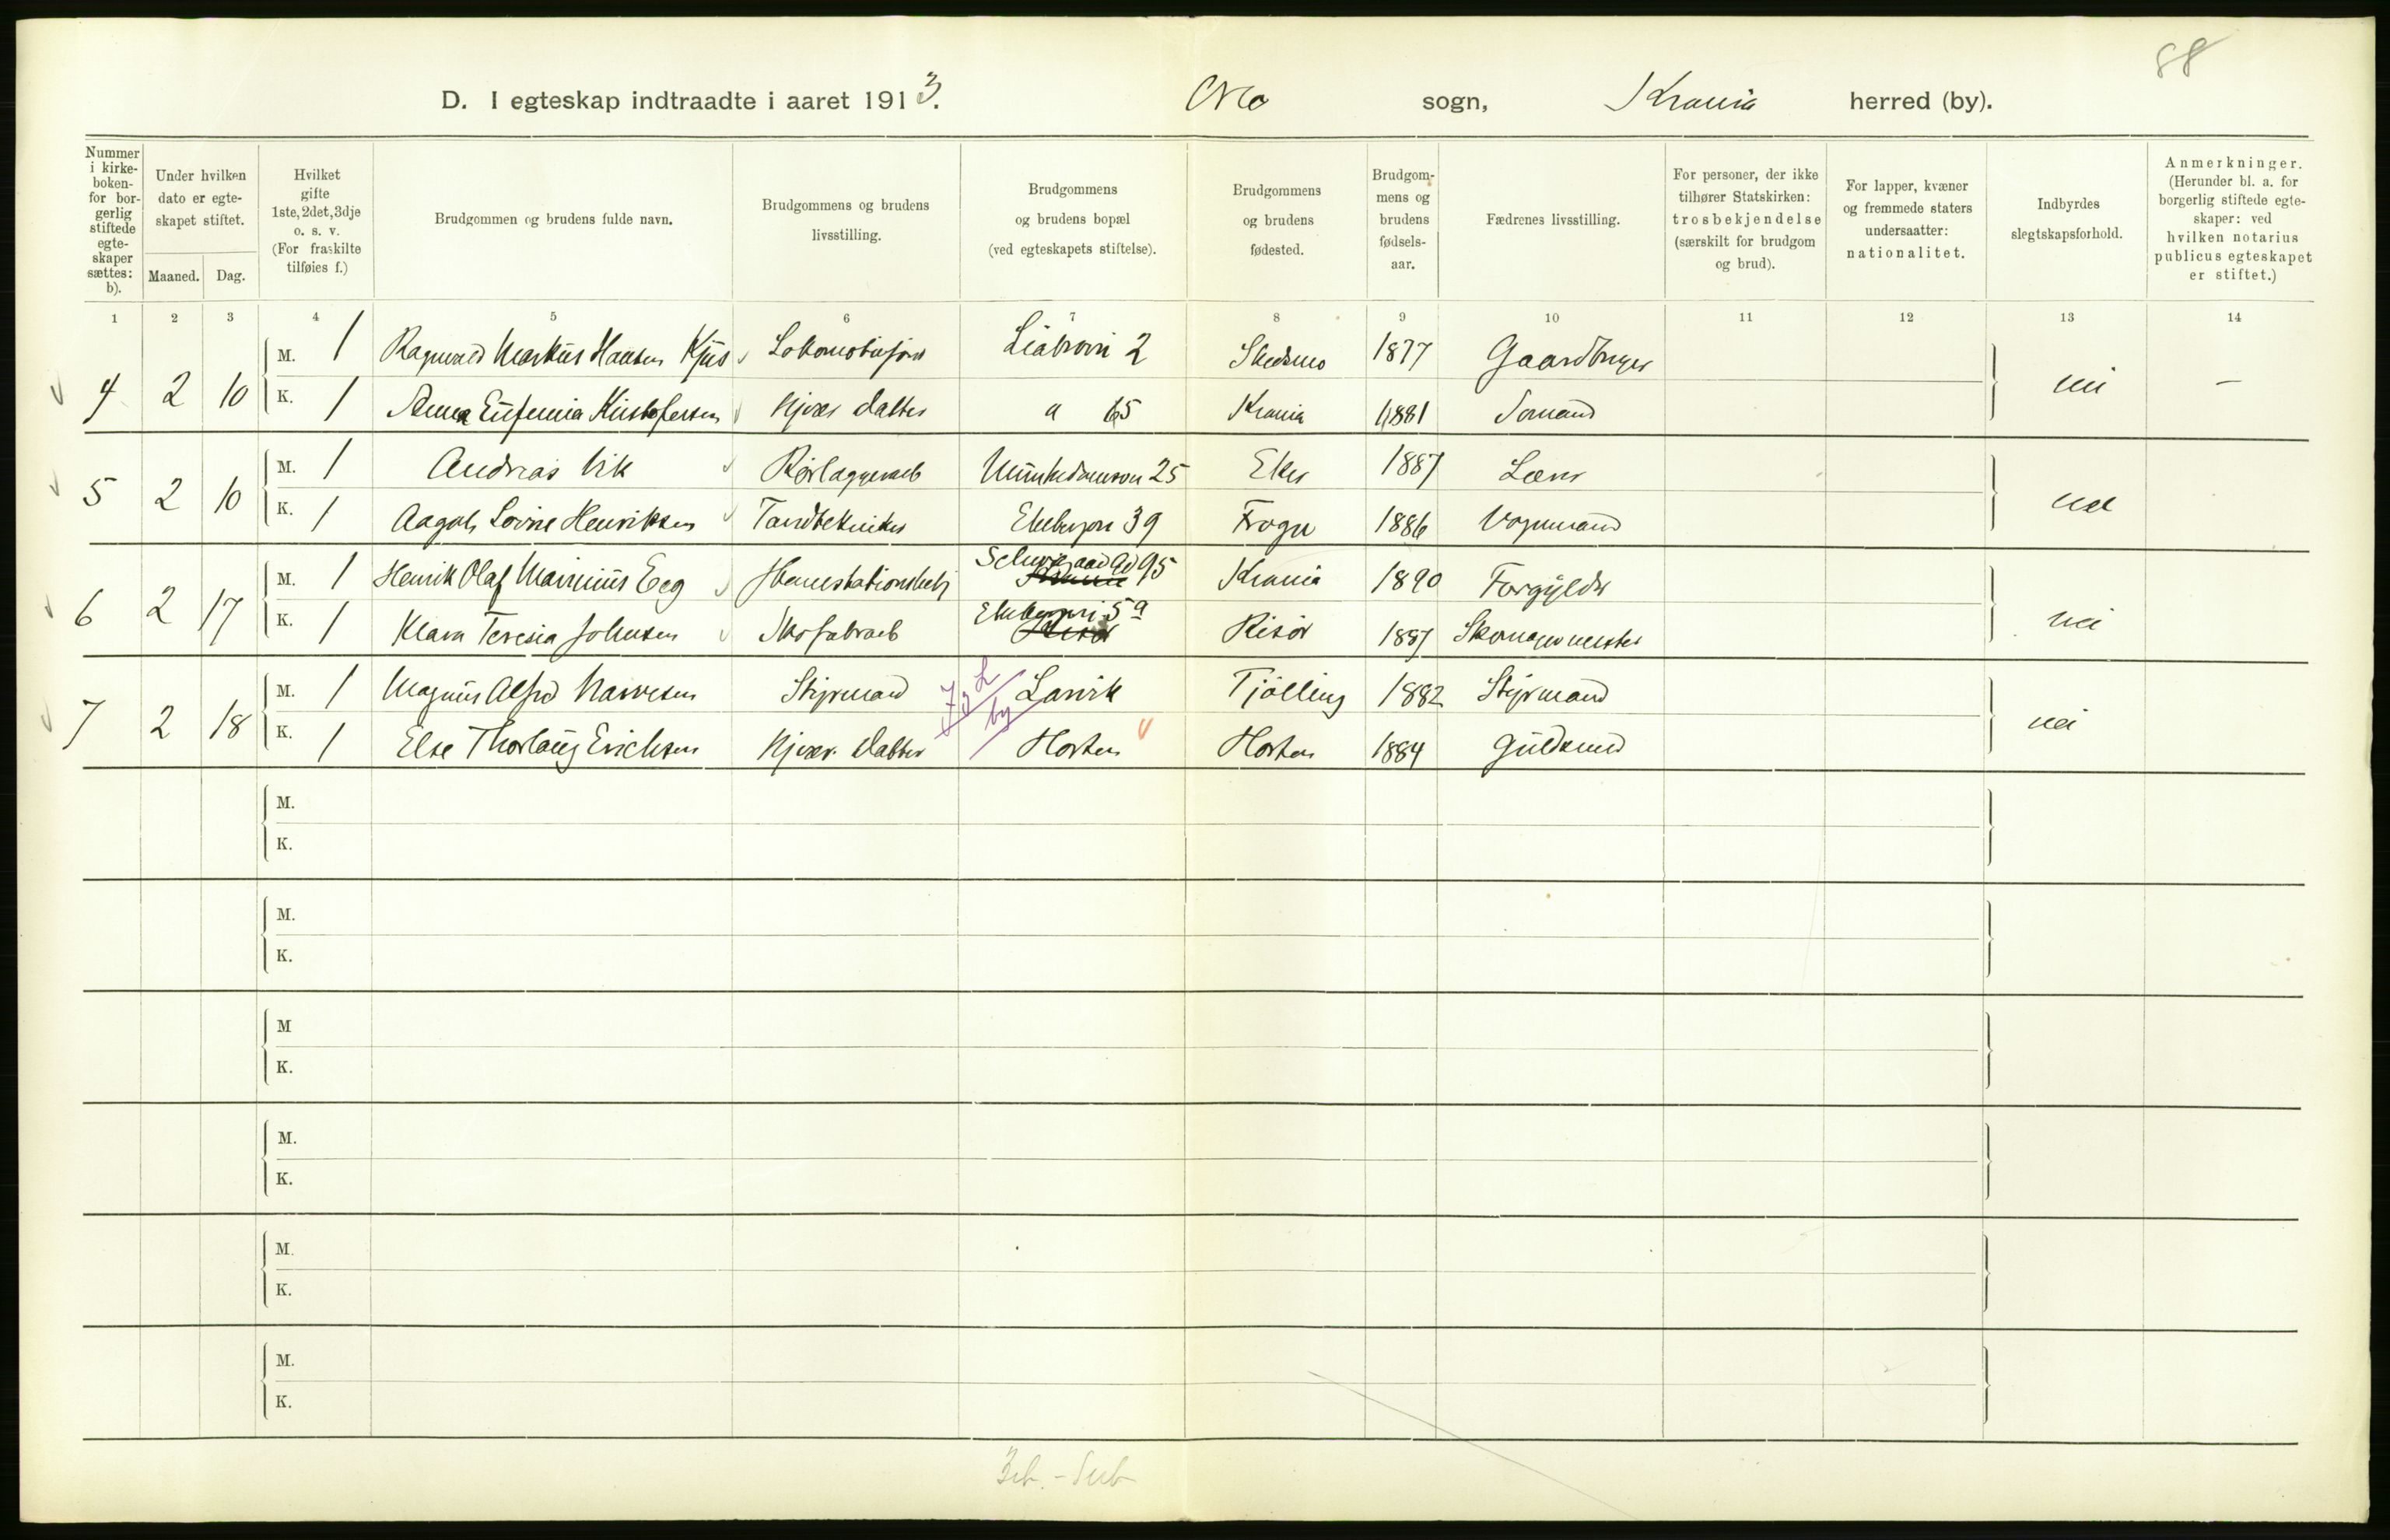 88
D. I egteskap indtraadte i aaret 1913. Oslo sogn, Krania herred (by).
Nummer i kirkeboken- for borgerlig stiftede egteskaper sættes: b).
Under hvilken dato er egteskapet stiftet.
Maaned. Dag.
Hvilket gifte 1ste, 2det, 3dje o. s. v. (For fraskilte tilføies f.)
Brudgommen og brudens fulde navn.
Brudgommens og brudens livsstilling.
Brudgommens og brudens bopæl (ved egteskapets stiftelse).
Brudgommens og brudens fødested.
Brudgommens og brudens fødselsaar.
Fædrenes livsstilling.
For personer, der ikke tilhører Statskirken: trosbekjendelse (særskilt for brudgom og brud).
For lapper, kvæner og fremmede staters undersaatter: nationalitet.
Indbyrdes slegtskapsforhold.
Anmerkninger. (Herunder bl. a. for borgerlig stiftede egteskaper: ved hvilken notarius publicus egteskapet er stiftet.)
1 2 3 4 5 6 7 8 9 10 11 12 13 14
M. 1 Ragnvald Markus Hansen Kjus Lokomotivfører Liabrovn 2 Skedsmo 1877 Gaardbruger
4 2 10 nei —
K. 1 Anna Eufemia Kristofersen Hjvær. datter " 65 Krania 1881 Sømand
M. 1 Andreas Vik Rørlæggerarb Munkedamsvn 25 Eker 1887 Læns
5 2 10 nei
K. 1 Aagot Lovise Henriksen Tandtekniker Ekebergvn 39 Frogn 1886 Vognmand
M. 1 Henrik Olaf Marinius Eeg Schweigaardgd 95 Krania 1890 Forgylder
6 2 17 nei
K. 1 Klara Teresia Johnsen Skofabrarb Ekebergvei 5a Risør 1887 Skomagermester
M. 1 Magnus Alfred Narvesen Styrmand Larvik Tjølling 1882 Styrmand
7 2 18 J g L by nei
K. 1 Else Thorlaug Erichsen Hjvær. datter Horten Horten 1884 Guldsmed
M.
K.
M.
K.
M
K.
M.
K.
M.
K.
M.
K.